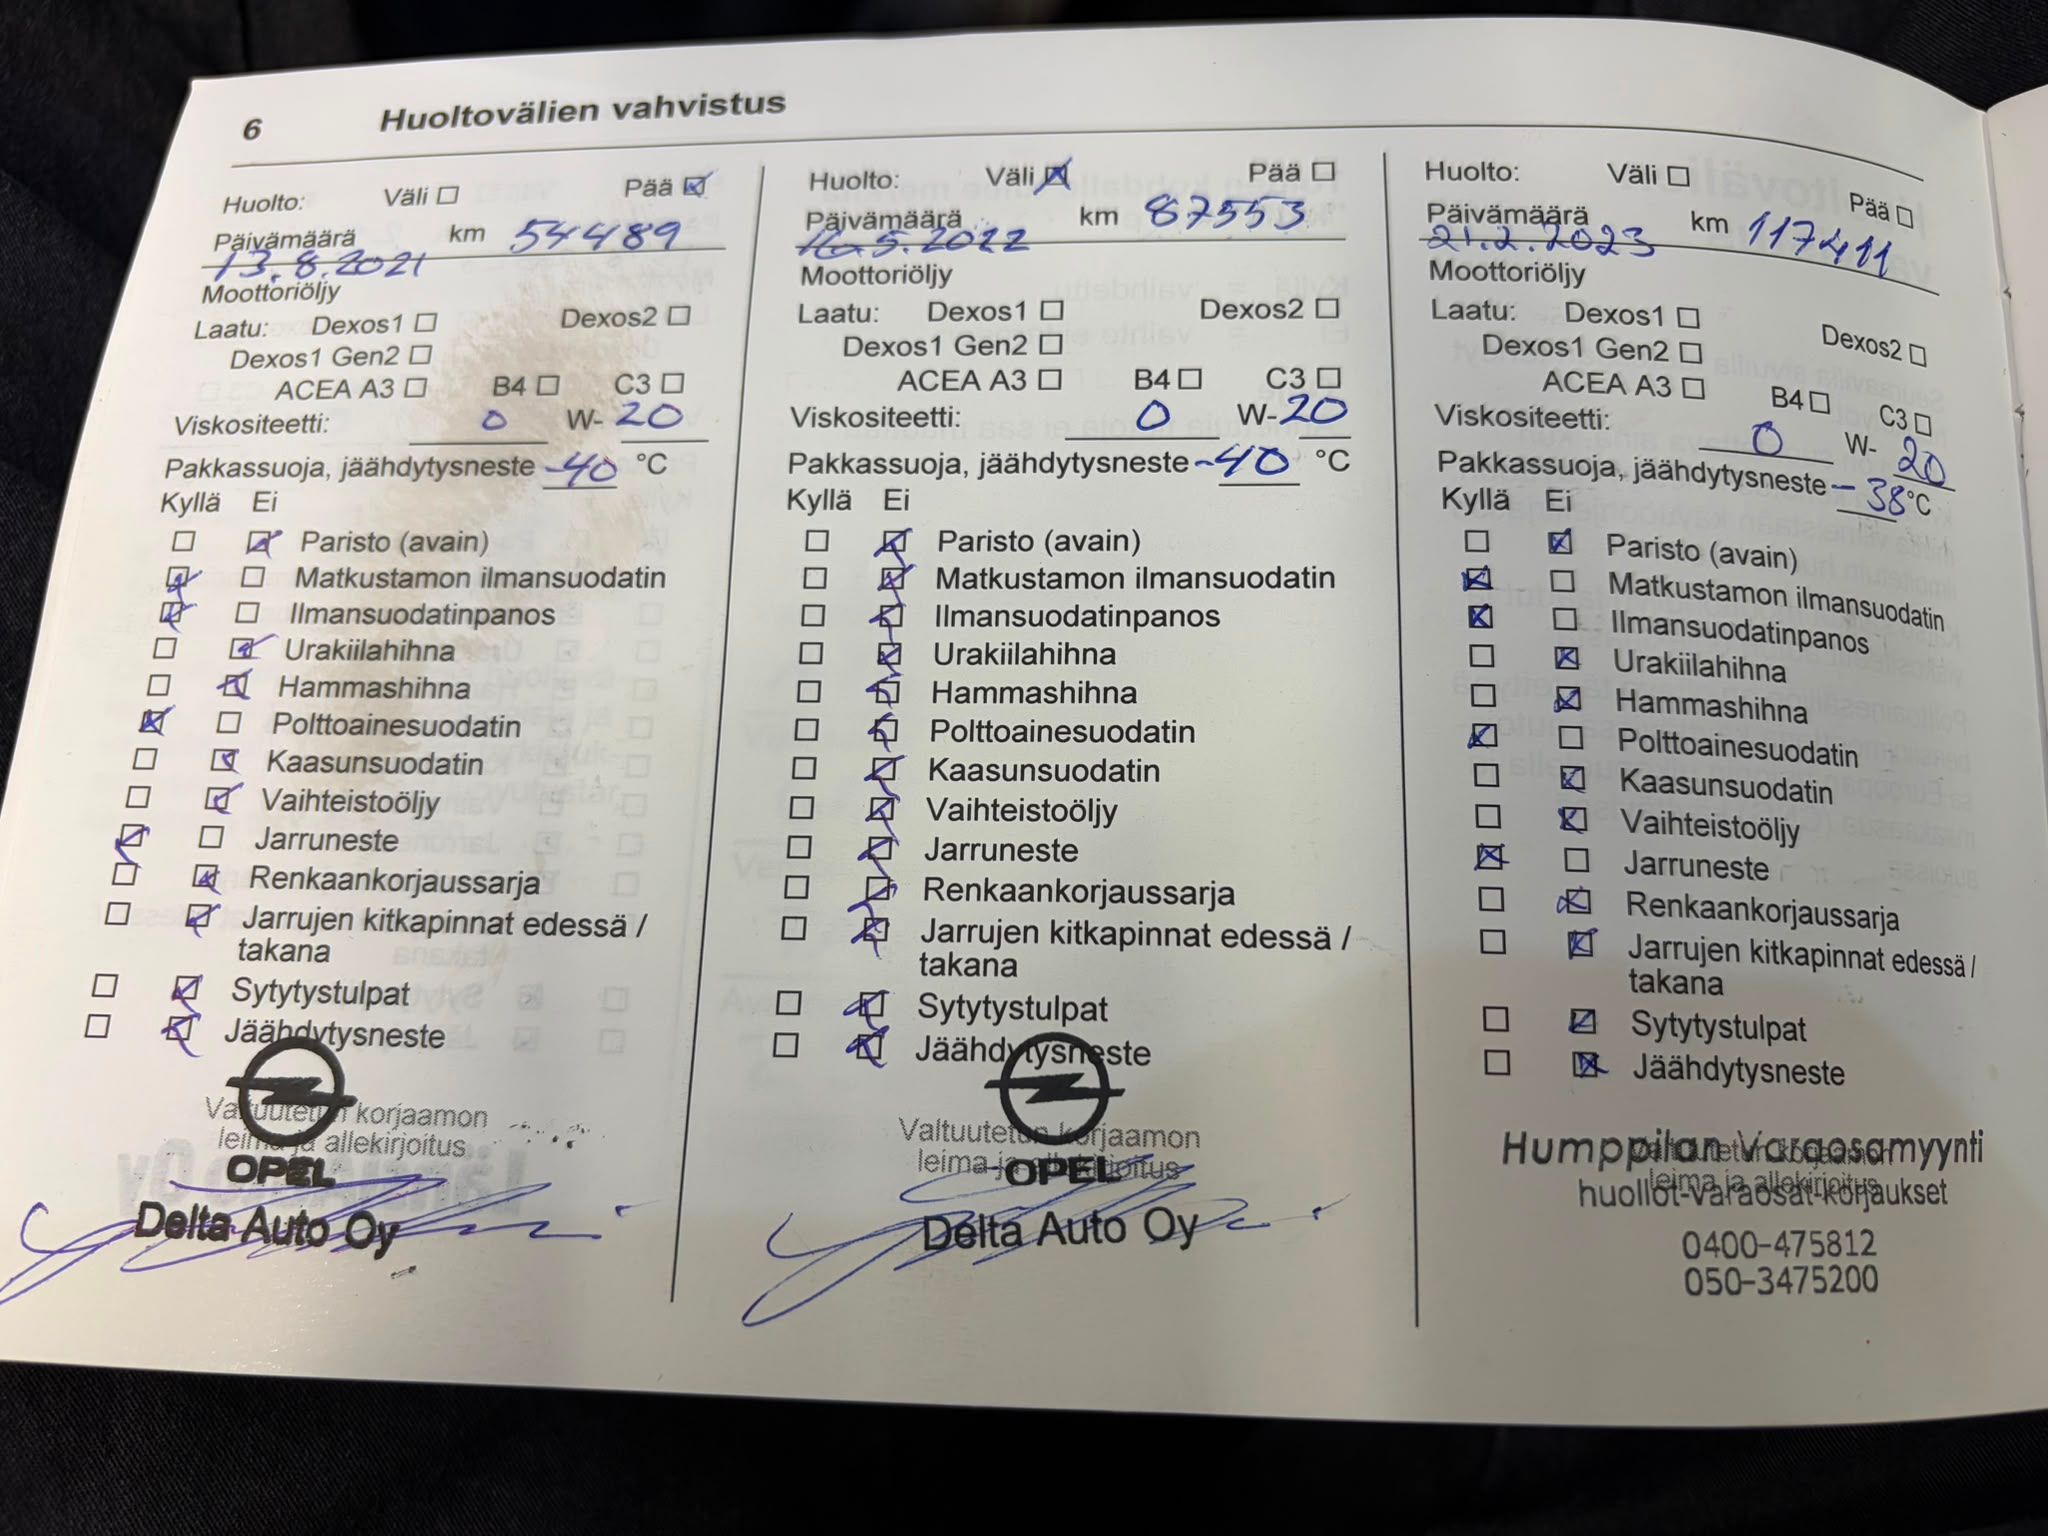 6 Huoltovälien vahvistus
Huolto: Väli ☐ Pää ☒
Päivämäärä km 54489
13.8.2021
Moottoriöljy
Laatu: Dexos1 ☐ Dexos2 ☐
Dexos1 Gen2 ☐
ACEA A3 ☐ B4 ☐ C3 ☐
Viskositeetti: 0 W- 20
Pakkassuoja, jäähdytysneste -40 °C
Kyllä Ei
☐ ☒ Paristo (avain)
☒ ☐ Matkustamon ilmansuodatin
☒ ☐ Ilmansuodatinpanos
☐ ☒ Urakiilahihna
☐ ☒ Hammashihna
☒ ☐ Polttoainesuodatin
☐ ☒ Kaasunsuodatin
☐ ☒ Vaihteistoöljy
☒ ☐ Jarruneste
☐ ☒ Renkaankorjaussarja
☐ ☒ Jarrujen kitkapinnat edessä /
takana
☐ ☒ Sytytystulpat
☐ ☒ Jäähdytysneste
Valtuutetun korjaamon
leima ja allekirjoitus
OPEL
Delta Auto Oy
Huolto: Väli ☒ Pää ☐
Päivämäärä km 87553
5.2022
Moottoriöljy
Laatu: Dexos1 ☐ Dexos2 ☐
Dexos1 Gen2 ☐
ACEA A3 ☐ B4 ☐ C3 ☐
Viskositeetti: 0 W- 20
Pakkassuoja, jäähdytysneste -40 °C
Kyllä Ei
☐ ☒ Paristo (avain)
☐ ☒ Matkustamon ilmansuodatin
☐ ☒ Ilmansuodatinpanos
☐ ☒ Urakiilahihna
☐ ☒ Hammashihna
☐ ☒ Polttoainesuodatin
☐ ☒ Kaasunsuodatin
☐ ☒ Vaihteistoöljy
☐ ☒ Jarruneste
☐ ☒ Renkaankorjaussarja
☐ ☒ Jarrujen kitkapinnat edessä /
takana
☐ ☒ Sytytystulpat
☐ ☒ Jäähdytysneste
Valtuutetun korjaamon
leima ja allekirjoitus
OPEL
Delta Auto Oy
Huolto: Väli ☐ Pää ☐
Päivämäärä km 117411
21.2.2023
Moottoriöljy
Laatu: Dexos1 ☐ Dexos2 ☐
Dexos1 Gen2 ☐
ACEA A3 ☐ B4 ☐ C3 ☐
Viskositeetti: 0 W- 20
Pakkassuoja, jäähdytysneste -38 °C
Kyllä Ei
☐ ☒ Paristo (avain)
☒ ☐ Matkustamon ilmansuodatin
☒ ☐ Ilmansuodatinpanos
☐ ☒ Urakiilahihna
☐ ☒ Hammashihna
☒ ☐ Polttoainesuodatin
☐ ☒ Kaasunsuodatin
☐ ☒ Vaihteistoöljy
☒ ☐ Jarruneste
☐ ☒ Renkaankorjaussarja
☐ ☒ Jarrujen kitkapinnat edessä /
takana
☐ ☒ Sytytystulpat
☐ ☒ Jäähdytysneste
Humppilan Varaosamyynti
leima ja allekirjoitus
huollot-varaosat-korjaukset
0400-475812
050-3475200